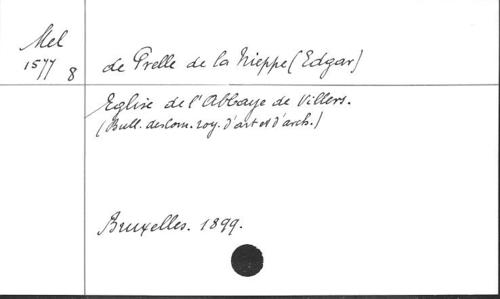 Mel
1577 8
de Prelle de la Nieppe (Edgar)
Eglise de l'Abbaye de Villers.
(Bull. des Com. roy. d'art et d'arch.)
Bruxelles. 1899.